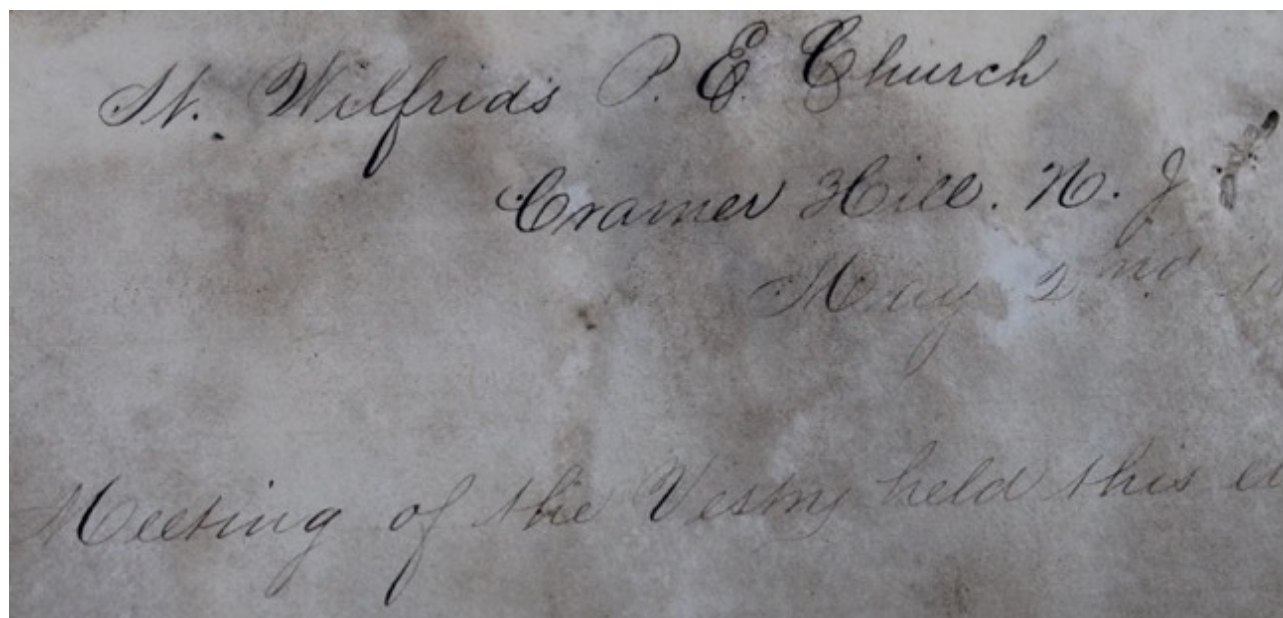 St. Wilfrids P. E. Church
Cramer Hill. N. J
May 2nd
Meeting of the Vestry held this